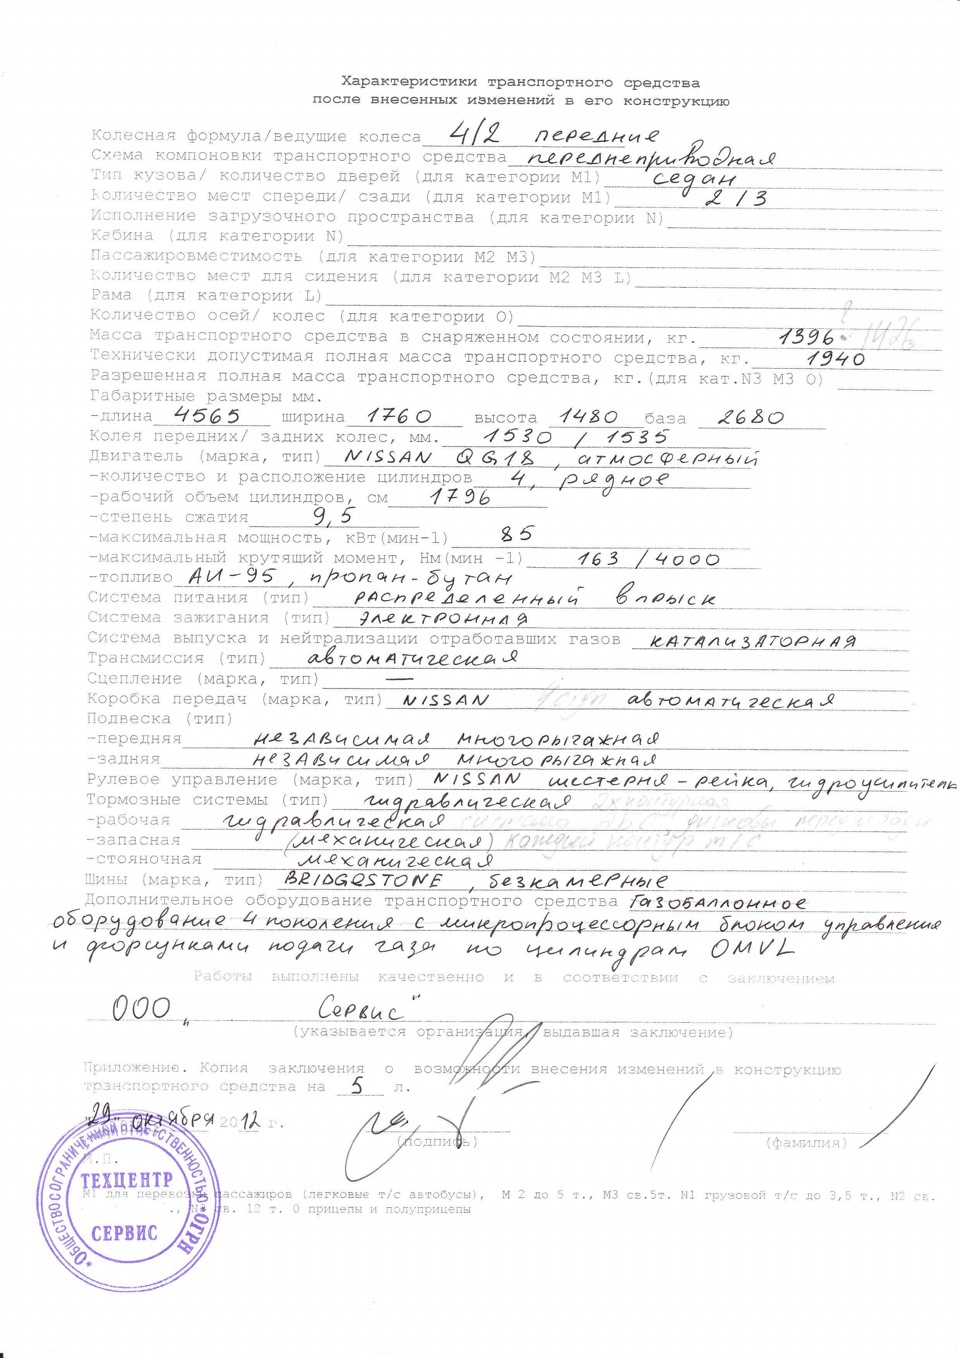 Характеристики транспортного средства
после внесенных изменений в его конструкцию
Колесная формула/ведущие колеса 4/2 передние
Схема компоновки транспортного средства переднеприводная
Тип кузова/ количество дверей (для категории М1) седан
Количество мест спереди/ сзади (для категории М1) 2 / 3
Исполнение загрузочного пространства (для категории N)
Кабина (для категории N)
Пассажировместимость (для категории М2 М3)
Количество мест для сидения (для категории М2 М3 L)
Рама (для категории L)
Количество осей/ колес (для категории О)
Масса транспортного средства в снаряженном состоянии, кг. 1396 ? 1426
Технически допустимая полная масса транспортного средства, кг. 1940
Разрешенная полная масса транспортного средства, кг.(для кат.N3 М3 О)
Габаритные размеры мм.
-длина 4565 ширина 1760 высота 1480 база 2680
Колея передних/ задних колес, мм. 1530 / 1535
Двигатель (марка, тип) NISSAN QG18, атмосферный
-количество и расположение цилиндров 4, рядное
-рабочий объем цилиндров, см 1796
-степень сжатия 9,5
-максимальная мощность, кВт(мин-1) 85
-максимальный крутящий момент, Нм(мин -1) 163 /4000
-топливо АИ-95, пропан-бутан
Система питания (тип) распределенный впрыск
Система зажигания (тип) электронная
Система выпуска и нейтрализации отработавших газов катализаторная
Трансмиссия (тип) автоматическая
Сцепление (марка, тип) —
Коробка передач (марка, тип) NISSAN 4 ступ автоматическая
Подвеска (тип)
-передняя независимая многорычажная
-задняя независимая многорычажная
Рулевое управление (марка, тип) NISSAN шестерня-рейка, гидроусилитель
Тормозные системы (тип) гидравлическая 2х контурная
-рабочая гидравлическая система АБС дисковы
-запасная (механическая) каждый контур т/с
-стояночная механическая
Шины (марка, тип) BRIDGESTONE, безкамерные
Дополнительное оборудование транспортного средства Газобаллонное
оборудование 4 поколения с микропроцессорным блоком управления
и форсунками подачи газа по цилиндрам OMVL
Работы выполнены качественно и в соответствии с заключением
ООО „ Сервис"
(указывается организация, выдавшая заключение)
Приложение. Копия заключения о возможности внесения изменений в конструкцию
транспортного средства на 5 л.
"29" октября 2012 г.
(подпись) (фамилия)
М.П.
ОБЩЕСТВО С ОГРАНИЧЕННОЙ ОТВЕТСТВЕННОСТЬЮ * ОГРН
ТЕХЦЕНТР
СЕРВИС
М1 для перевозки пассажиров (легковые т/с автобусы), М 2 до 5 т., М3 св.5т. N1 грузовой т/с до 3,5 т., N2 св.
., N3 св. 12 т. О прицепы и полуприцепы